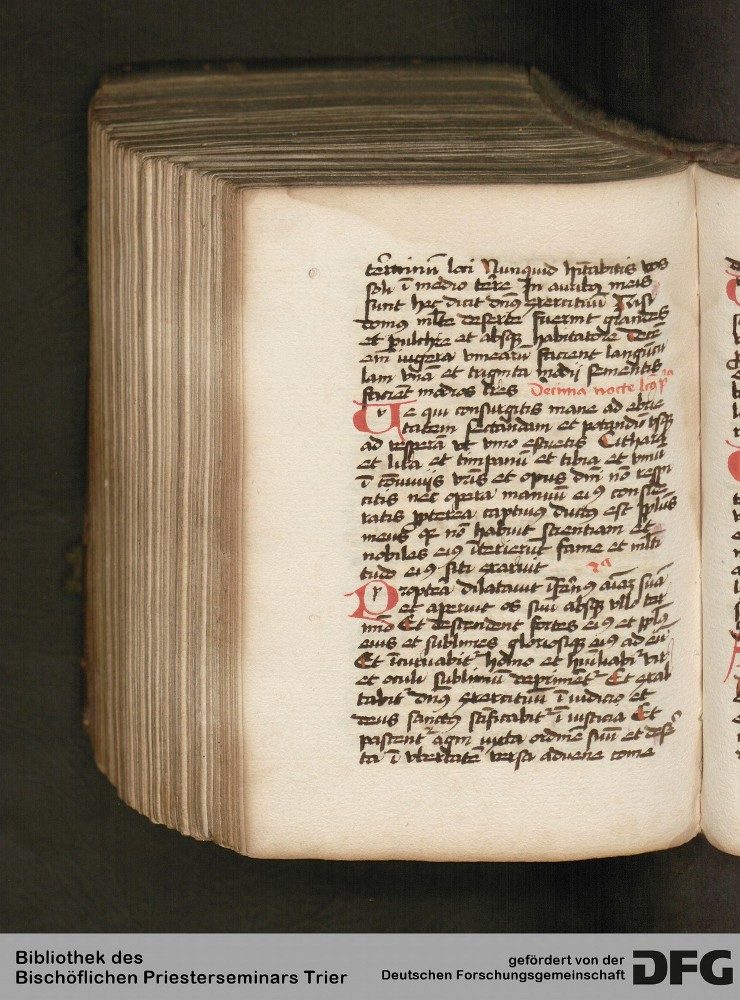 terminū loci Nunquid hītabitis vos
soli ī medio terre In auribꝰ meis
sunt hec dicit dn̄s exercituū Nisi
domus ml̄te deserte fuerint grandes
et pulchre et absqꝫ habitatore Decē
eī iugera vinearū facient langūcu
lam vnā et triginta modii sementis
facient modios tres Decima nocte lc̄o pͣ
Ve qui consurgitis mane ad ebrie
tatem sectandam et potandū vsqꝫ
ad vesperā vt vino estuetis Cithara
et lira et timpanū et tibia et vinū
ī cōuiuiis vrīs et opus dnī nō respi
citis nec opera manuū eiꝰ conside
ratis ꝓpterea captiuꝰ ductꝰ est pplūs
meus qꝫ nō habuit scientiam et
nobiles eiꝰ īterierūt fame et ml̄ti
tudo eiꝰ siti exaruit 2ª
Propterea dilatauit īfernꝰ aīaꝫ suā
et aperuit os suū absqꝫ vllo ter
mīo Et descendent fortes eiꝰ et pplꝰ
eius et sublimes gloriosiqꝫ eiꝰ ad eū
Et īcuruabitᷣ homo et hūiliabiᷣ vir
et oculi sublimiū deprimētᷣ Et exal
tabitᷣ dn̄s exercituū ī iudicio et
deus sanctꝰ sc̄ificabitᷣ ī iusticia Et
pascentᷣ agni iuxta ordinē suū et deser
ta ī vbertatē versa aduene come
Bibliothek des
Bischöflichen Priesterseminars Trier
gefördert von der
Deutschen Forschungsgemeinschaft
DFG